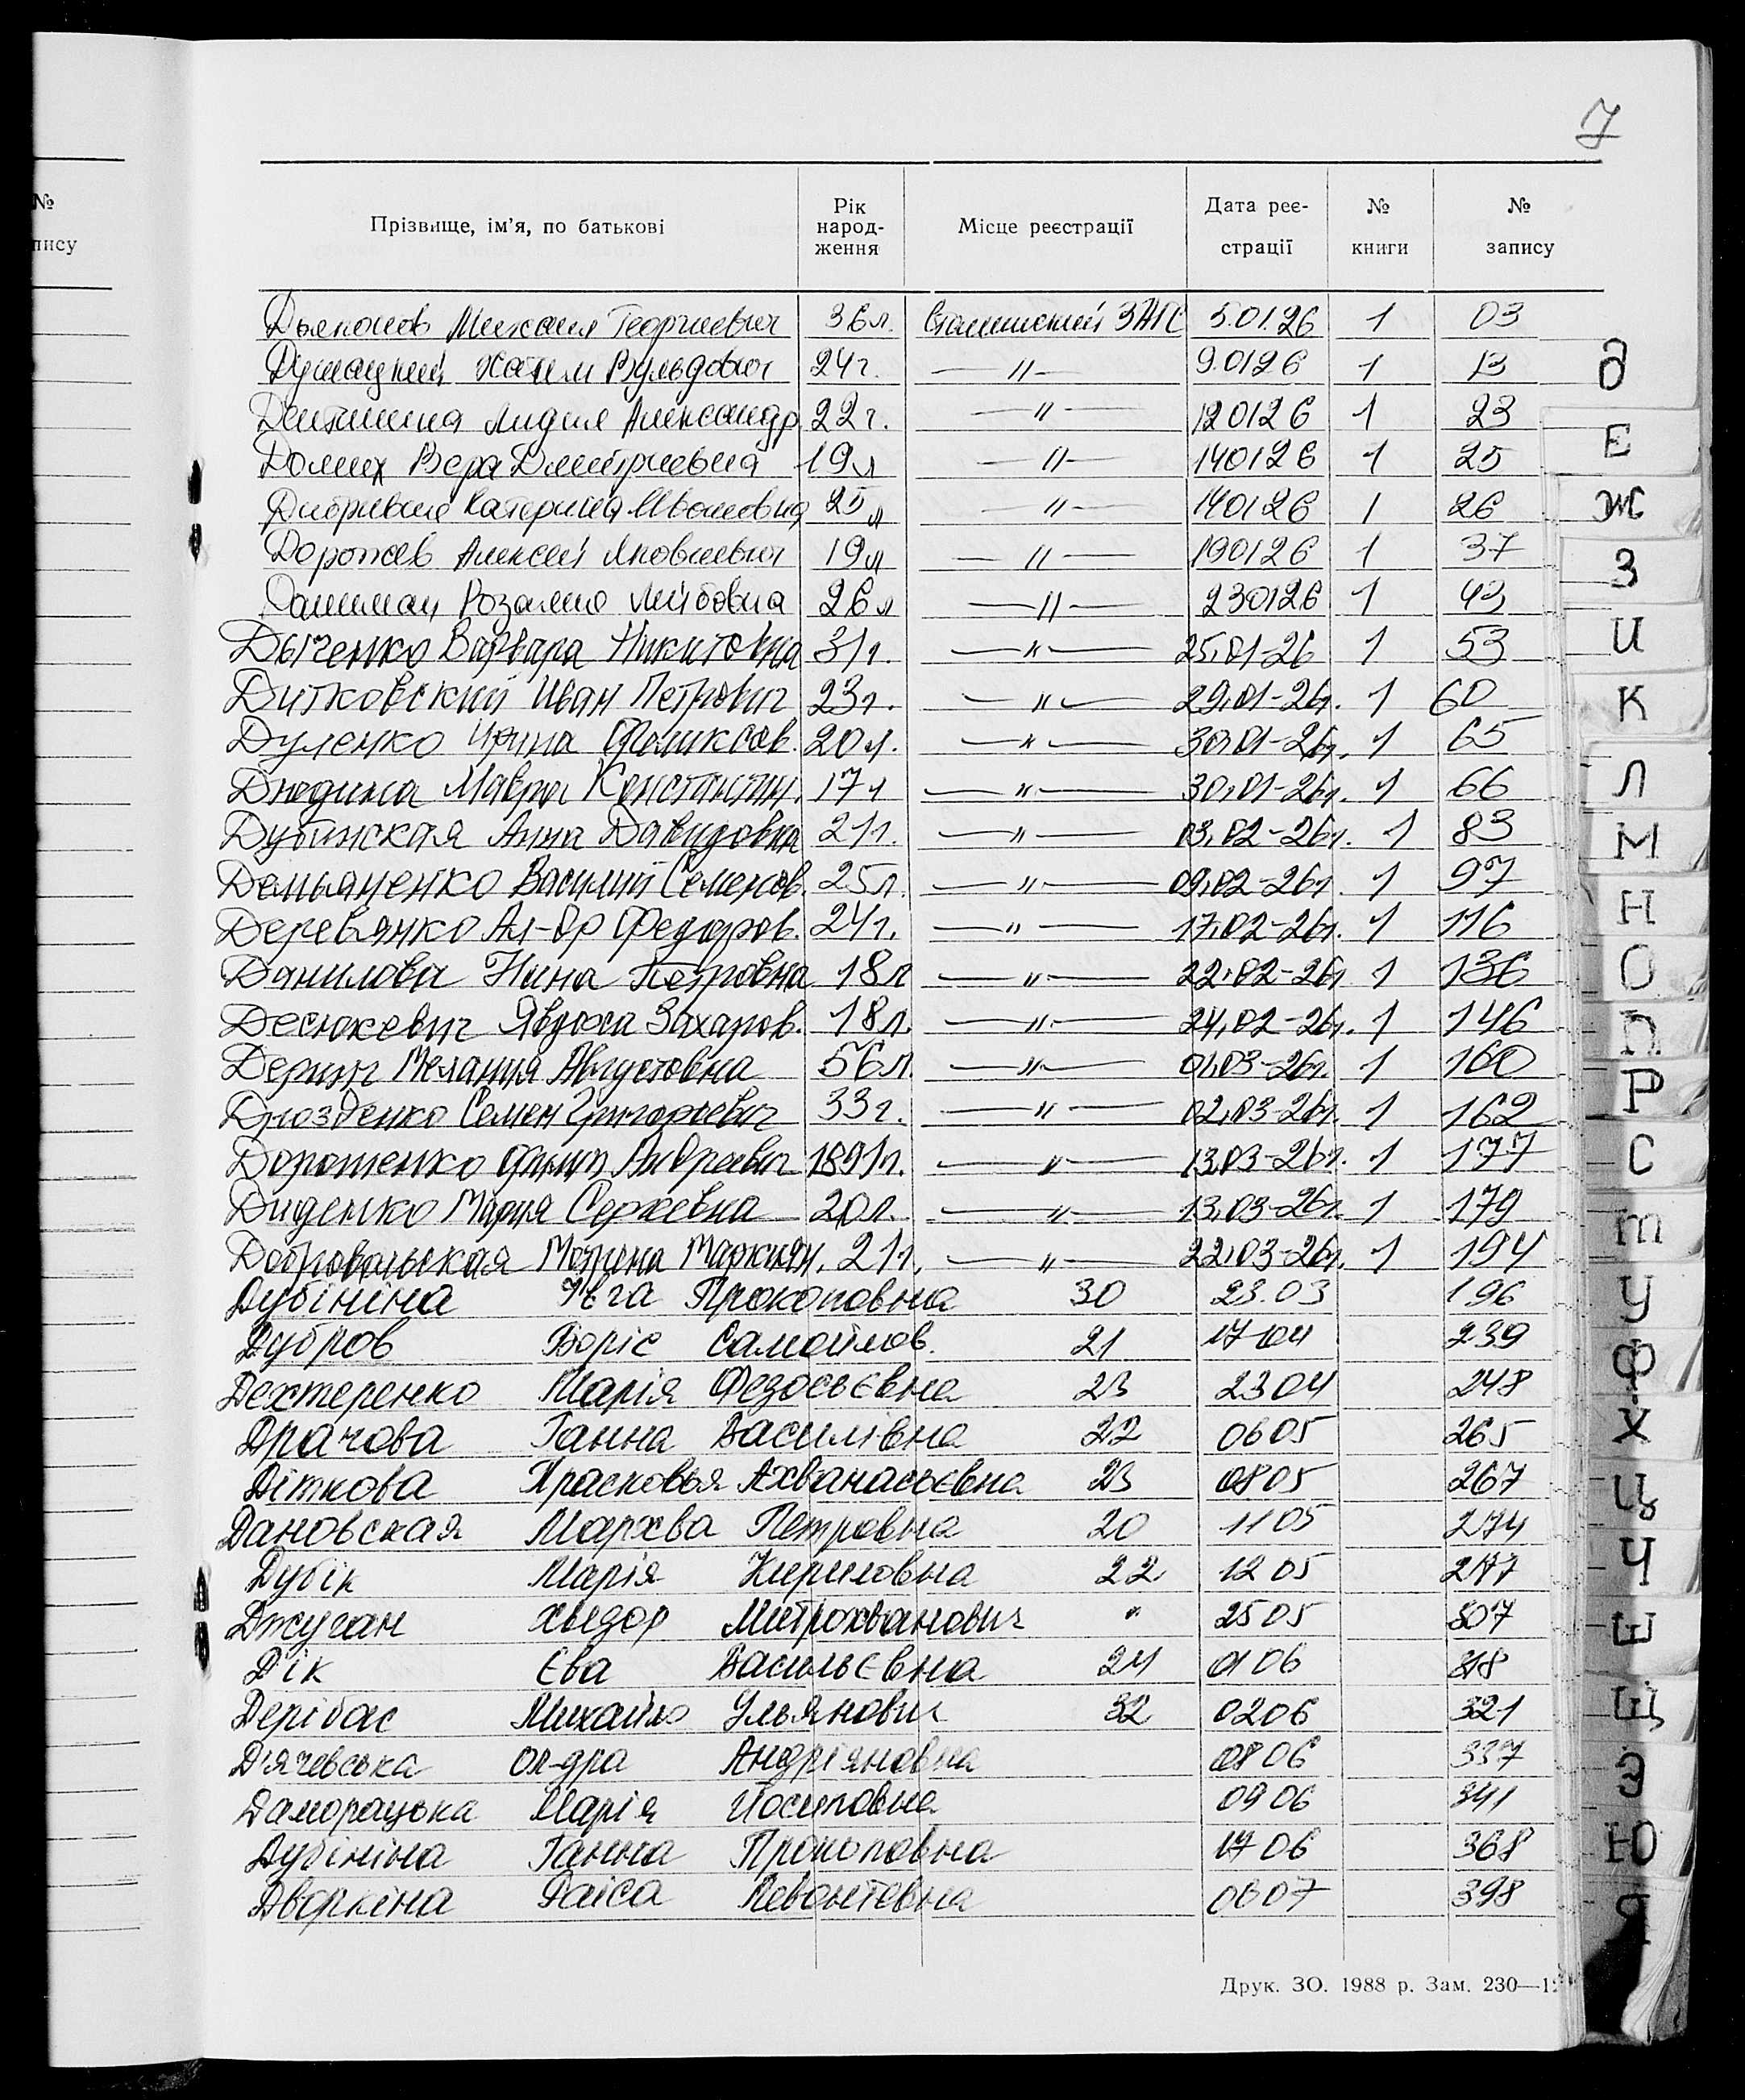 7
№
пису
Прізвище, ім’я, по батькові
Рік народ-ження
Місце реєстрації
Дата реє-страції
№ книги
№ запису
Дьяконов Михаил Георгиевич 36 л. Сталинский ЗАГС 5.01.26 1 03
Хаим Вульфович 24 г. —〃— 9.0126 1 13
Лидия Александр 22 г. —〃— 120126 1 23
Вера Дмитриевна 19 л —〃— 140126 1 25
Катерина Ивановна 25 л —〃— 140126 1 26
Дорожев Алексей Яковлевич 19 л —〃— 190126 1 37
Розалия 26 л —〃— 230126 1 43
Дьяченко Варвара Никитовна 31 г. —〃— 25.01-26 1 53
Дитковский Иван Петрович 23 г. —〃— 29.01-26г. 1 60
Дуленко Ирина Феликсов. 20 л. —〃— 30.01-26г. 1 65
Дюдина Мавра Константин. 17 л —〃— 30.01-26г. 1 66
Дубинская Анна Давидовна 21 г. —〃— 03.02-26г. 1 83
Демьяненко Василий Семенов. 25 л. —〃— 09.02-26г. 1 97
Деревянко Ал-др Федоров. 24 г. —〃— 17.02-26г. 1 116
Данилова Нина Петровна 18 л —〃— 22.02-26г 1 136
Десюкевич Явдоха Захаров. 18 л. —〃— 24.02-26г. 1 146
Мелания Августовна 56 л. —〃— 01.03-26г. 1 160
Дрозденко Семен Григорьевич 33 г. —〃— 02.03-26г. 1 162
Дорошенко Филип Андреевич 1891 г. —〃— 13.03-26г. 1 177
Диденко Мария Сергеевна 20 л. —〃— 13.03-26г. 1 179
Добровольская Матрена Маркиян. 21 г. —〃— 22.03-26г. 1 194
Дубініна Ївга Прокоповна 30 23.03 196
Дубров Боріс Самойлов. 21 17 04 239
Дехтеренко Марія Федосьєвна 23 23 04 248
Драчова Ганна Василівна 22 06 05 265
Діткова Прасковья Ахванасьєвна 23 08 05 267
Дановская Мархва Петровна 20 11 05 274
Дубік Марія Кириловна 22 12 05 277
Джуган Хведор Митрохванович 〃 25 05 307
Дік Єва Васильєвна 24 01 06 318
Дерібас Михайло Ульянович 32 02 06 321
Д'ячевська Ол-дра Андріяновна 08 06 337
Даморацька Марія Йосиповна 09 06 341
Дубініна Ганна Прокоповна 17 06 368
Дворкіна Раіса Левонтевна 06 07 398
Друк. ЗО. 1988 р. Зам. 230—1
д
Е
Ж
З
И
К
Л
М
Н
О
П
Р
С
т
У
Ф
Х
Ц
Ч
Ш
Щ
Э
Ю
Я